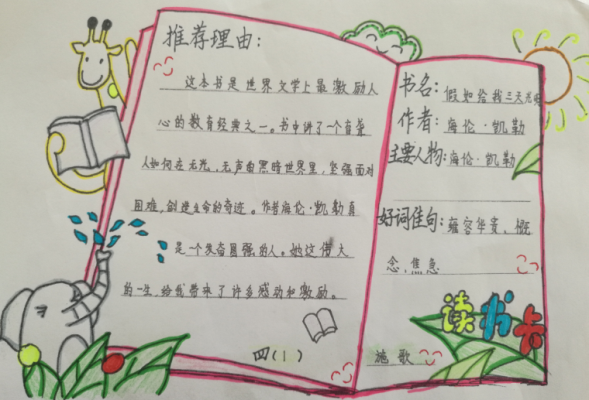 推荐理由:
这本书是世界文学上最激励人
心的教育经典之一。书中讲了一个盲聋
人如何在无光、无声曲黑暗世界里,坚强面对
困难,创造生命的奇迹。作者海伦·凯勒真
是一个发奋图强的人。她这伟大
的一生,给我带来了许多感动和激励。
四(1)
书名:假如给我三天光明
作者:海伦·凯勒
主要人物:海伦·凯勒
好词佳句:雍容华贵、概
念、焦急
读书卡
施歌